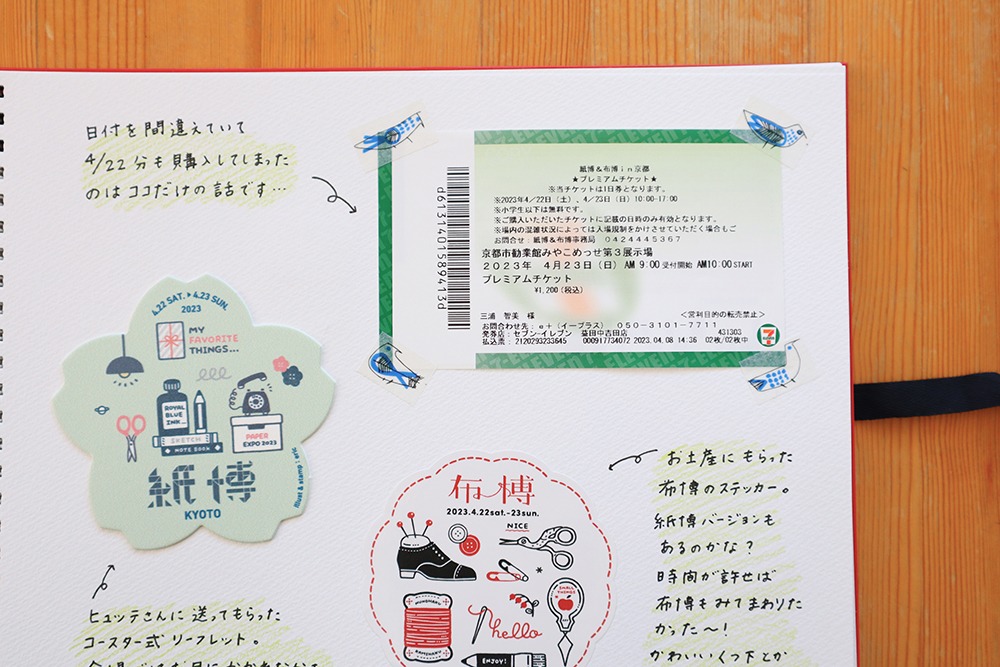 日付を間違えていて
4/22分も購入してしまった
のはココだけの話です…
d6131401589413d
紙博&布博in京都
★プレミアムチケット★
※当チケットは1日券となります。
※2023年4/22日(土)、4/23日(日)10:00-17:00
※小学生以下は無料です。
※ご購入いただいたチケットに記載の日時のみ有効となります。
※場内の混雑状況によっては入場規制をかけさせていただく場合もご
お問合せ:紙博&布博事務局 0424445367
京都市勧業館みやこめっせ第3展示場
2023年 4月23日(日) AM 9:00受付開始 AM10:00START
プレミアムチケット
¥1,200(税込)
三浦 智美 様
<営利目的の転売禁止>
お問合わせ先:e+(イープラス) 050-3101-7711
発券店:セブン-イレブン 益田中吉田店 431303
払込票:2120293233645 000917734072 2023.04.08 14:36 02枚/02枚中
4.22 SAT. ▸ 4.23 SUN.
2023
MY
FAVORITE
THINGS...
ROYAL
BLUE
INK
SKETCH
NOTE BOOK
PAPER
EXPO 2023
紙博
KYOTO
illust & stamp :
布博
2023.4.22sat.-23sun.
NICE
SMALL
THINGS
hello
ENJOY!
お土産にもらった
布博のステッカー。
紙博バージョンも
あるのかな?
時間が許せば
布博もみてまわりた
かった〜!
かわいいくつ下とか
ヒュッテさんに送ってもらった
コースター式リーフレット。